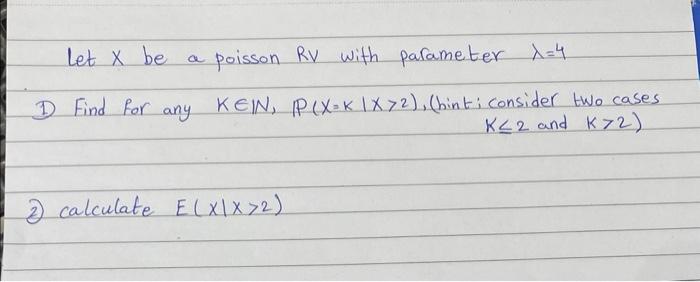 Let X be a poisson RV with parameter λ=4
① Find for any K∈ℕ, ℙ(X=K|X>2), (hint: consider two cases
K≤2 and K>2)
② calculate E(X|X>2)